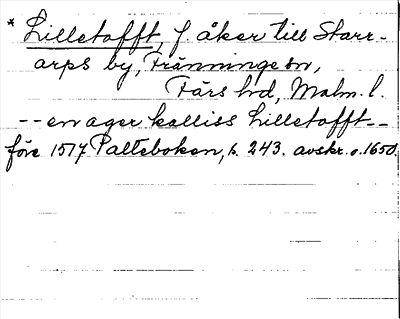 * Lilletofft, f. åker till Starr-
arps by, Tränninge sn,
Färs hd, Malm. l.
-- en ager kalliss Lilletofft --
före 1517 Palteboken, s. 243. avskr. o. 1650.